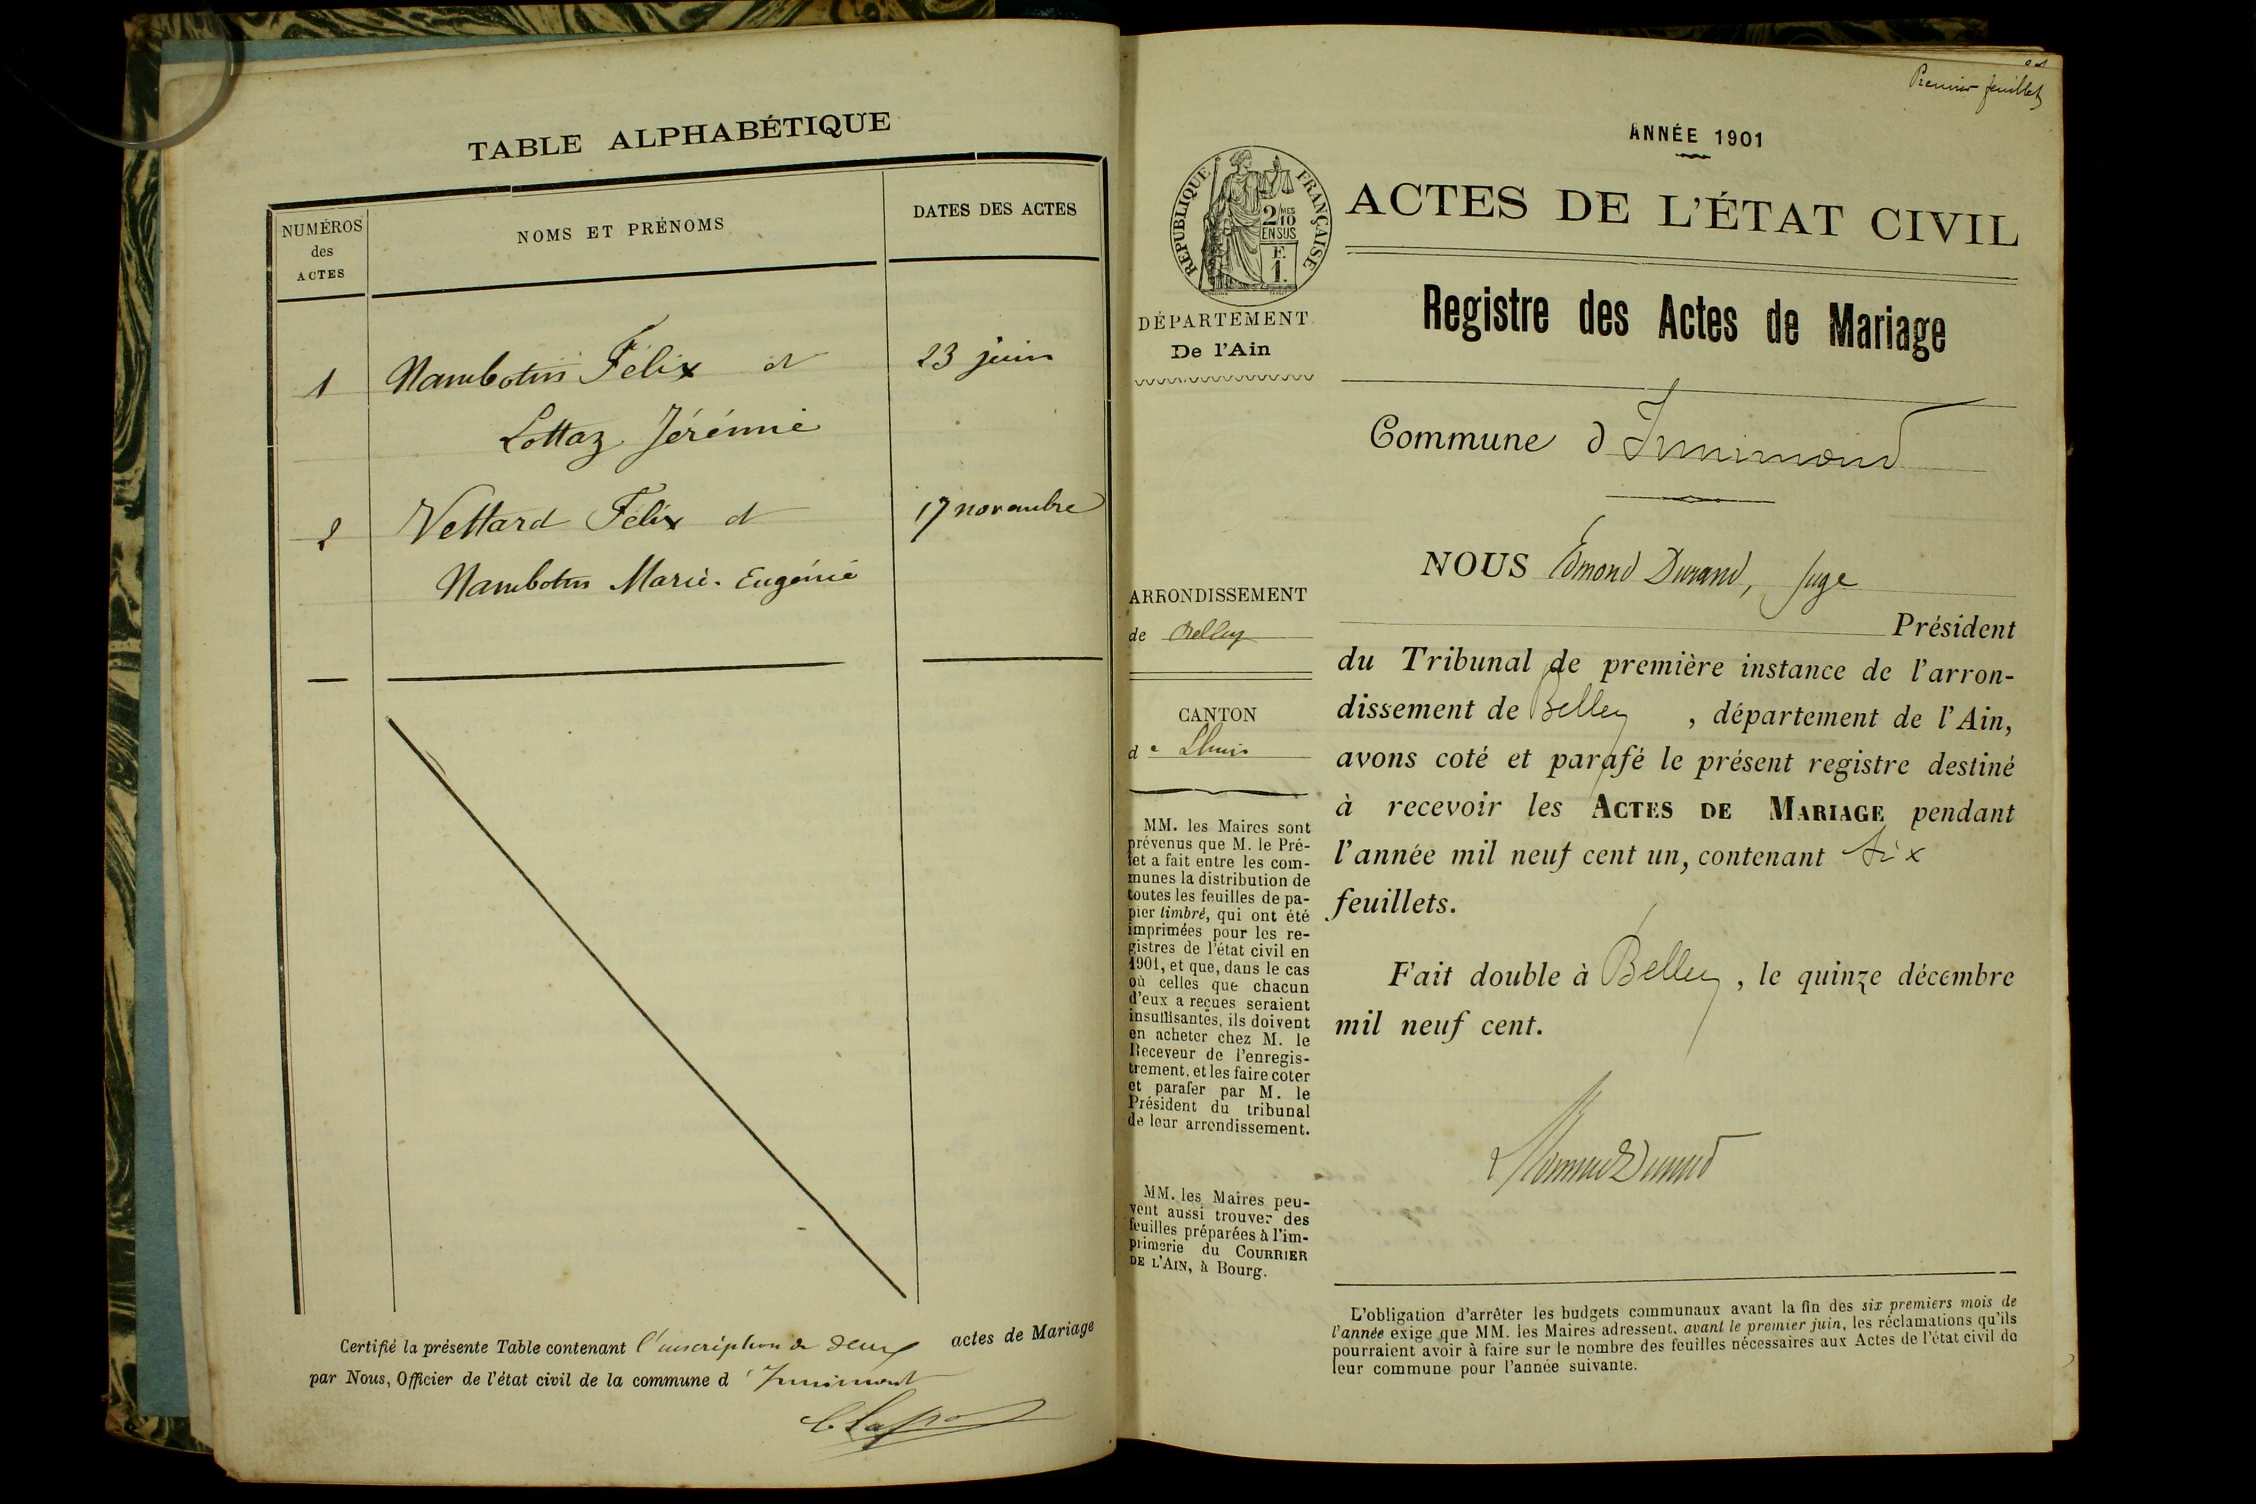 TABLE ALPHABÉTIQUE
NUMÉROS
des
ACTES
NOMS ET PRÉNOMS
DATES DES ACTES
1 Nambotin Félix et 23 juin
Lottaz Jérémie
2 Vettard Félix et 17 novembre
Nambotin Marie-Eugénie
Certifié la présente Table contenant l'inscription de deux actes de Mariage
par Nous, Officier de l'état civil de la commune d'Innimont
Premier feuillet
ANNÉE 1901
RÉPUBLIQUE FRANÇAISE
2/MES
10
EN SUS
F.
1.
ACTES DE L'ÉTAT CIVIL
Registre des Actes de Mariage
DÉPARTEMENT
De l'Ain
Commune d'Innimond
NOUS Edmond Durand, Juge
ARRONDISSEMENT
de Belley
CANTON
de Lhuis
Président
du Tribunal de première instance de l'arron-
dissement de Belley, département de l'Ain,
avons coté et parafé le présent registre destiné
à recevoir les ACTES DE MARIAGE pendant
l'année mil neuf cent un, contenant six
feuillets.
Fait double à Belley, le quinze décembre
mil neuf cent.
MM. les Maires sont
prévenus que M. le Pré-
fet a fait entre les com-
munes la distribution de
toutes les feuilles de pa-
pier timbré, qui ont été
imprimées pour les re-
gistres de l'état civil en
1901, et que, dans le cas
où celles que chacun
d'eux a reçues seraient
insuffisantes, ils doivent
en acheter chez M. le
Receveur de l'enregis-
trement, et les faire coter
et parafer par M. le
Président du tribunal
de leur arrondissement.
MM. les Maires peu-
vent aussi trouver des
feuilles préparées à l'im-
primerie du COURRIER
DE L'AIN, à Bourg.
L'obligation d'arrêter les budgets communaux avant la fin des six premiers mois de
l'année exige que MM. les Maires adressent, avant le premier juin, les réclamations qu'ils
pourraient avoir à faire sur le nombre des feuilles nécessaires aux Actes de l'état civil de
leur commune pour l'année suivante.